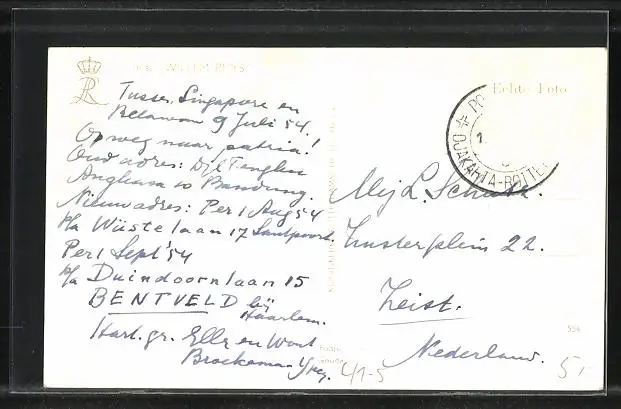 WILLEM RUYS
Echte Foto
Tussen Singapore en
Belawan 9 Juli 54.
Op weg naar patria!
Oud adres: Djl Tengku
Angkasa 10 Bandung.
Nieuw adres: Per 1 Aug 54
p/a Wüstelaan 17 Santpoort.
Per 1 Sept '54
p/a Duindoornlaan 15
BENTVELD bij
Haarlem.
Hart. gr. Elly en Wout
Broekema
DJAKARTA-ROTTE
Mej L. Schutz.
Zusterplein 22.
Zeist.
Nederland.
554
4/1-5
5,-